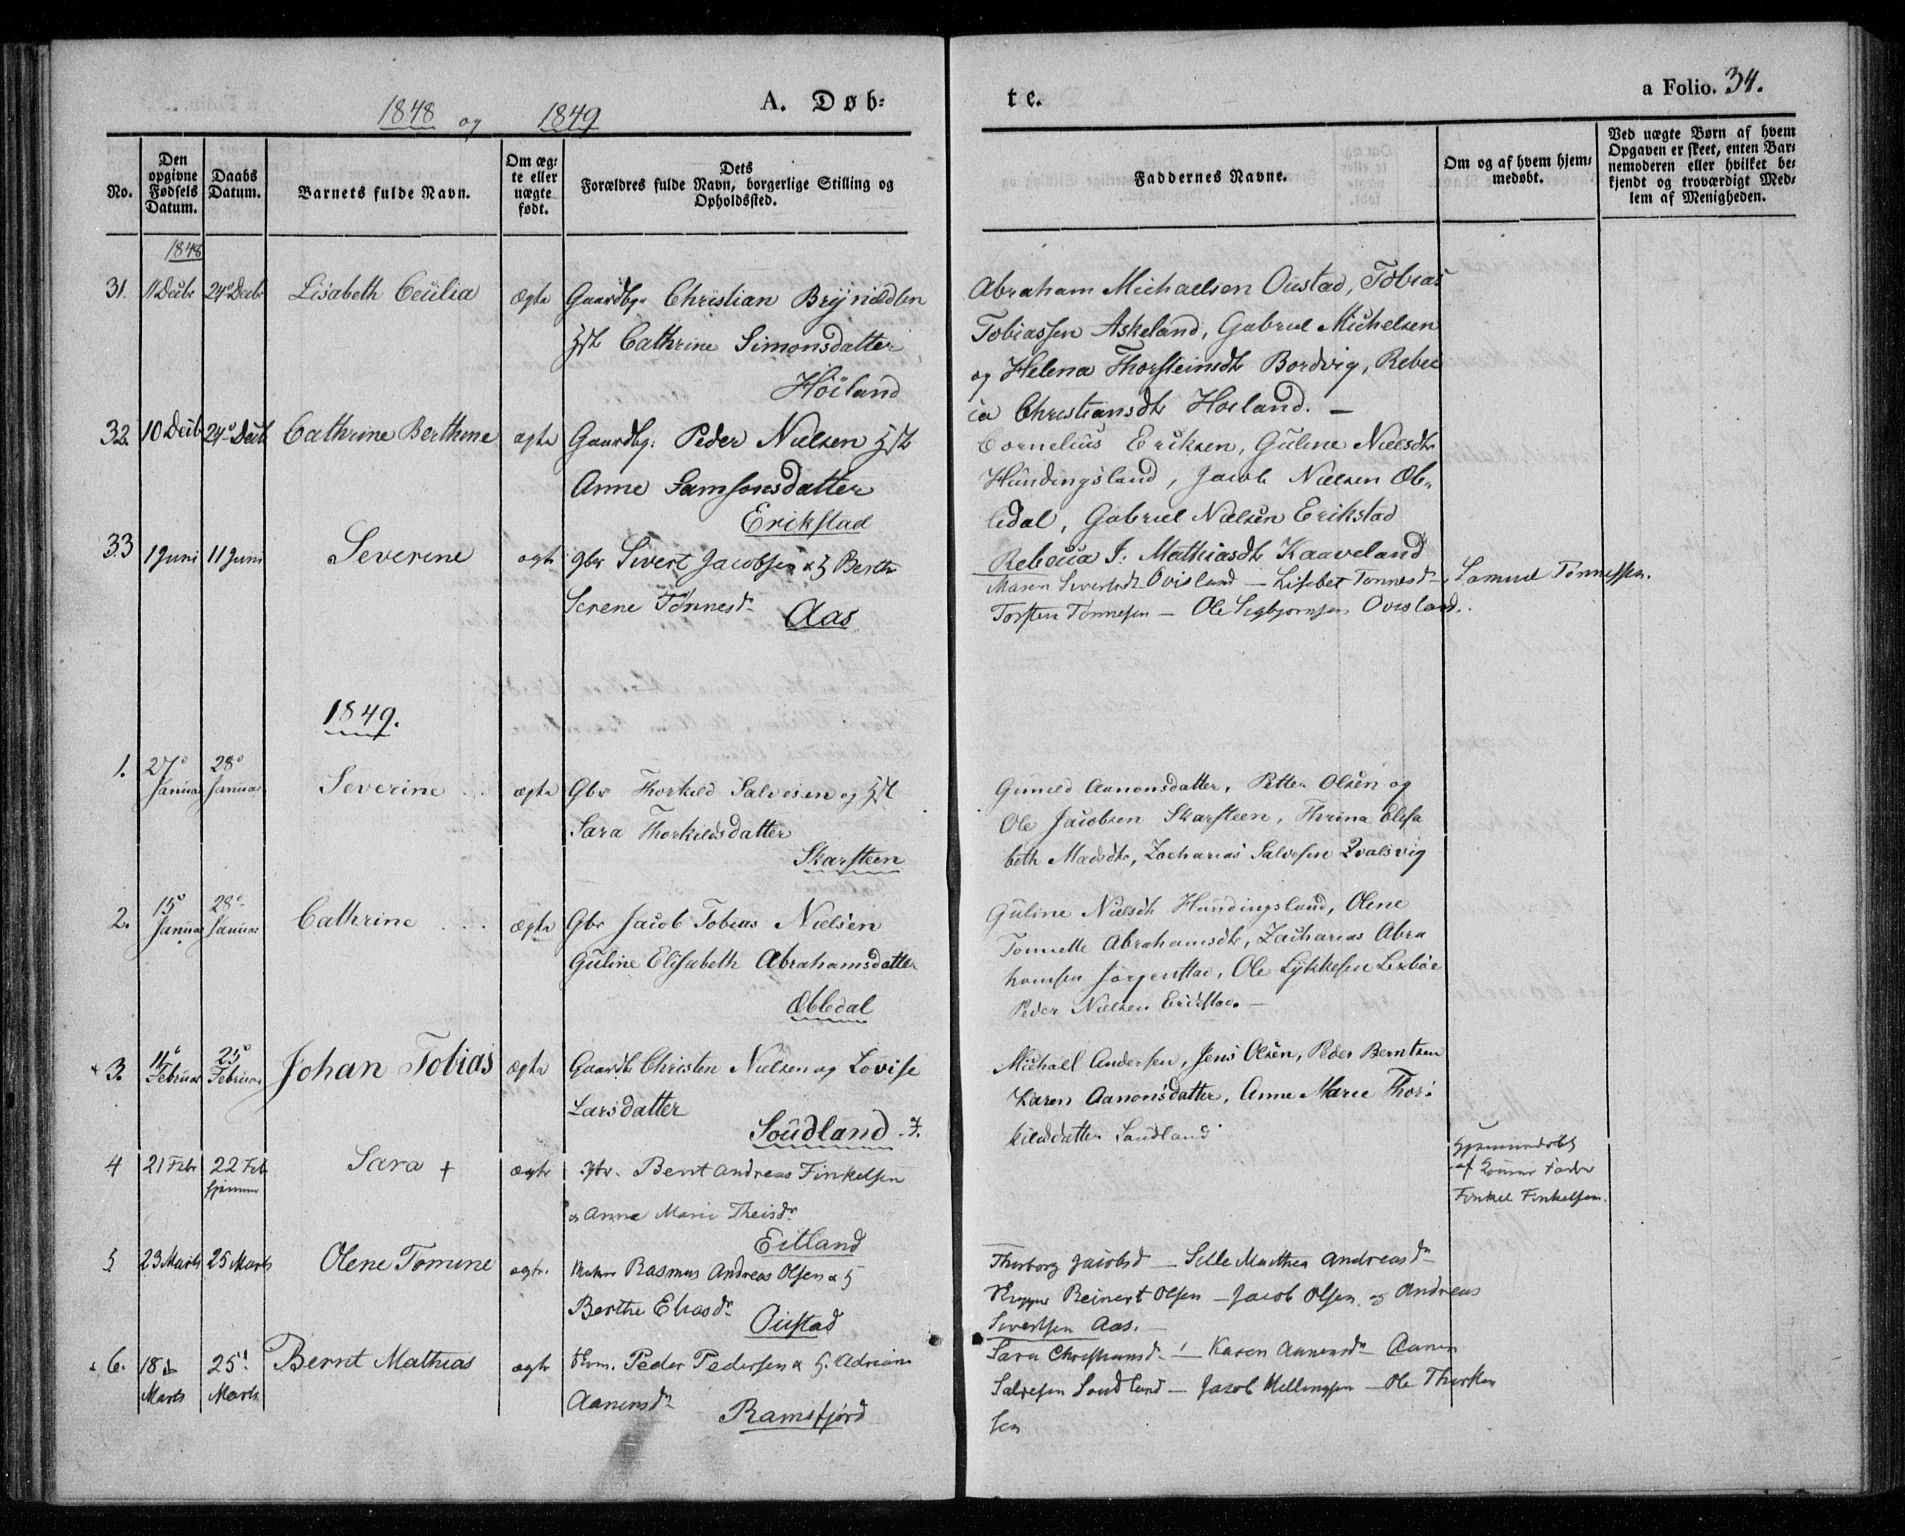 1848 og 1849
A. Døb-
te.
a Folio. 34.
No.
Den opgivne Fødsels Datum.
Daabs Datum.
Barnets fulde Navn.
Om ægte eller uægte født.
Dets
Forældres fulde Navn, borgerlige Stilling og
Opholdssted.
Faddernes Navne.
Om og af hvem hjem-
medøbt.
Ved uægte Børn af hvem
Opgaven er skeet, enten Bar-
nemoderen eller hvilket be-
kjendt og troværdigt Med-
lem af Menigheden.
1848
31. 11 Decbr 24de Decbr Lisabeth Cecilia ægte Gaardbgr Christian Brynildsen
Cathrine Simonsdatter
Höiland
Abraham Michaelsen Oustad, Tobias
Tobiassen Askeland, Gabriel Michelsen
og Helena Thorsteinsdtr Bordvig, Rebec
ca Christiansdtr Höiland. —
32. 10 Decb 24de Decb Cathrine Berthine ægte Gaardbg: Peder Nielsen
Anne Samsonsdatter
Erikstad
Cornelius Eriksen, Guline Nielsdtr
Hundingsland, Jacob Nielsen Øb-
ledal, Gabriel Nielsen Erikstad
Rebecca J. Mathiasdtr Kaaveland
33 1 Juni 11 Juni Severine ægte gbr Sivert Jacobsen & H Berthe
Serene Tønnesdr Aas
Maren Sivertsdr Ovisland — Lisebet Tønnesdr — Samuel Tønnessen.
Torsten Tønnesen — Ole Sigbjørnsen Ovisland.
1849.
1. 27de Januar 28de Januar Severine ægte Gbr Thorkild Salvesen og
Sara Thorkildsdatter
Skarsteen
Gunild Aanonsdatter, Petter Olsen og
Ole Jacobsen Skarsteen, Thrina Elisa
beth Madsdtr, Zacharias Salvesen Qvalsvig
2. 15de Januar 28de Januar Cathrine ægte Gbr Jacob Tobias Nielsen
Guline Elisabeth Abrahamsdatter
Øbledal
Guline Nielsdtr Hundingsland, Olene
Tonnette Abrahamsdtr, Zacharias Abra
hamsen Jørgenstad, Ole Lykkesen Lexböe
Peder Nielsen Erikstad. —
3. 11te Februar 25de Februar Johan Tobias ægte Gaardb Christen Nielsen og Lovise
Larsdatter
Soudland
Michael Andersen, Jens Olsen, Peder Berntsen
Karen Aanonsdatter, Anne Marie Thor-
kildsdatter Soudland
4 21 Febr 22 Feb hjemme Sara + ægte gbr. Bernt Andreas Finkelsen
& Anna Marie Theisdr
Eitland
Hjemmedøbt
af Konens Fader
Finkel Finkelsen.
5 23 Marts 25 Marts Olene Tomine ægte. Rasmus Andreas Olsen & H
Berthe Eliasdr Oustad
Thorborg Jacobsd — Sille Marthea Andreasdr
Reinert Olsen — Jacob Olsen og Andreas
Sivertsen Aas. —
6. 18de Marts 25de Marts Bernt Mathias ægte Peder Pedersen & H. Adriane
Aanensdr Ramsfjord
Sara Christiansdr — Karen Aanensdr Aanen
Salvesen Soudland — Jacob Hellingsen — Ole Thorkel
sen